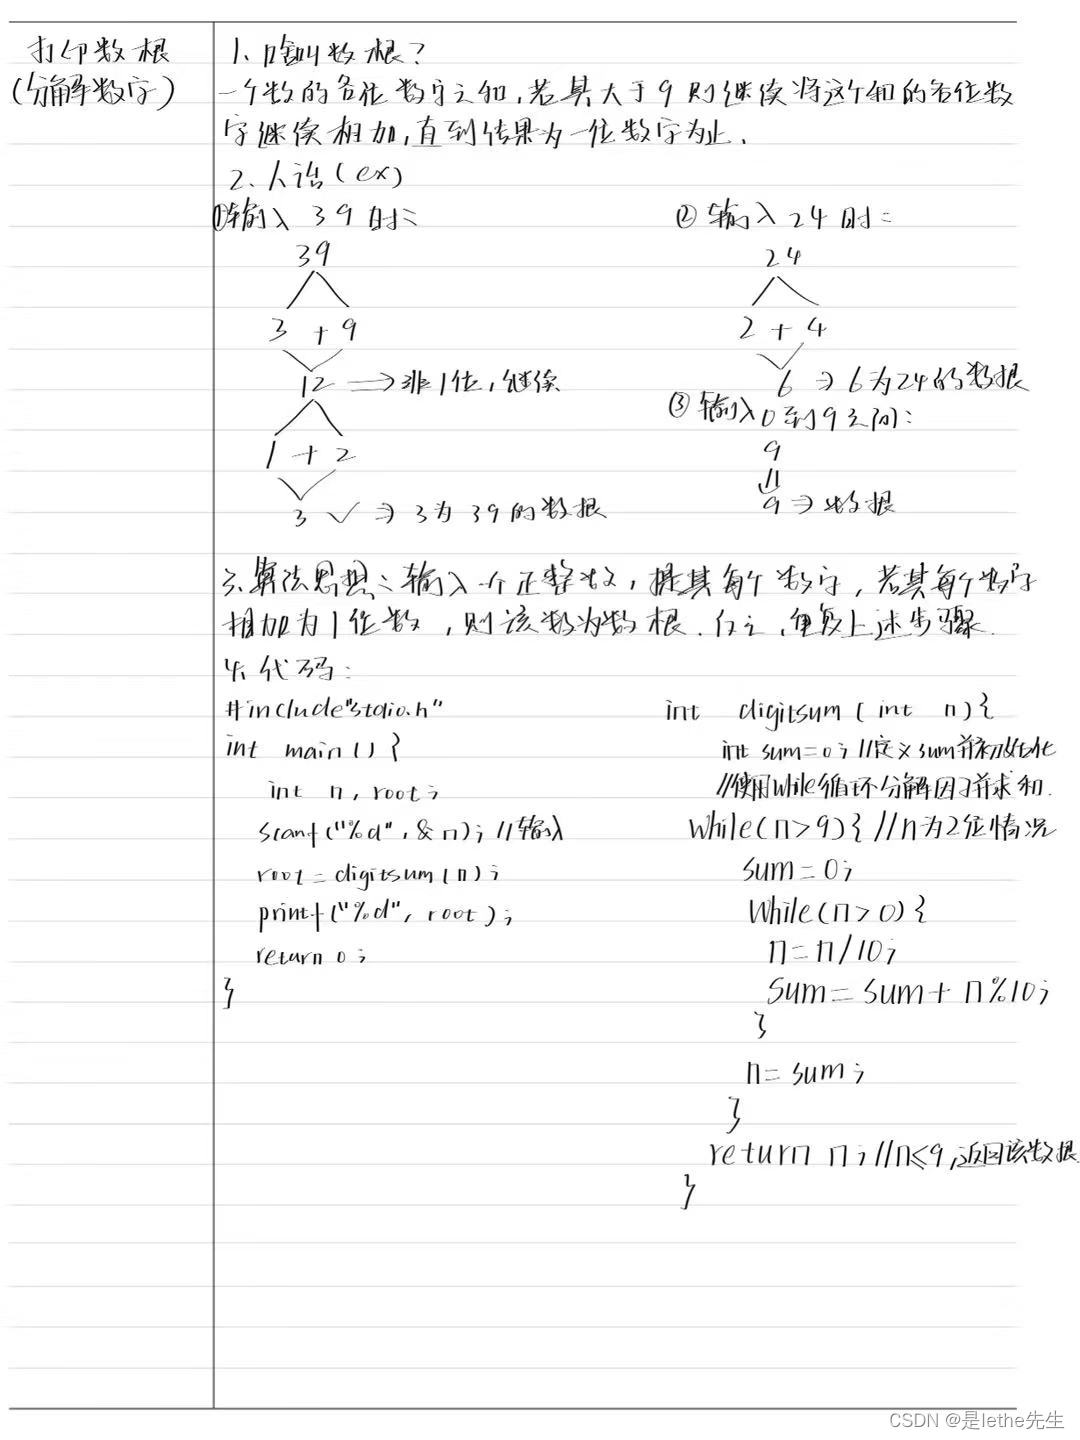 打印数根
(分解数字)
1、啥叫数根？
一个数的各位数字之和，若其大于9则继续将这个和的各位数
字继续相加，直到结果为一位数字为止.
2、人话(ex)
①输入 39时:
39
3 + 9
12 ⇒ 非1位，继续
1 + 2
3 ✓ ⇒ 3为39的数根
② 输入 24时:
24
2 + 4
6 ⇒ 6为24的数根
③ 输入0到9之间:
9
⇓
9 ⇒ 数根
3、算法思想:输入一个正整数，提其每个数字，若其每个数字
相加为1位数，则该数为数根.反之，重复上述步骤.
4、代码:
#include"stdio.h"
int main(){
int n,root;
scanf("%d",&n);//输入
root=digitsum(n);
printf("%d",root);
return 0;
}
int digitsum(int n){
int sum=0;//定义sum并初始化
//使用while循环分解因子并求和.
while(n>9){//n为2位情况
sum=0;
while(n>0){
n=n/10;
sum=sum+n%10;
}
n=sum;
}
return n;//n≤9,返回该数根
}
CSDN @是lethe先生